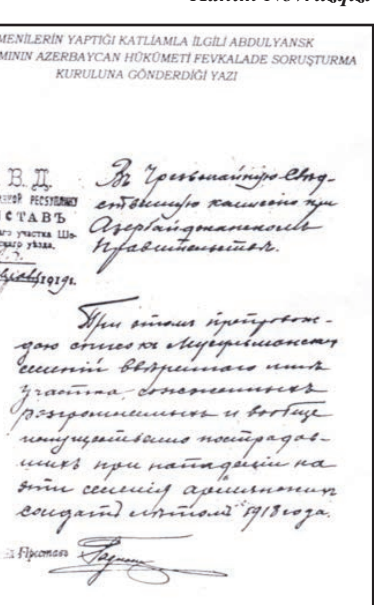 MENİLERİN YAPTIĞI KATLİAMLA İLGİLİ ABDULYANSK
MININ AZERBAYCAN HÜKÜMETİ FEVKALADE SORUŞTURMA
KURULUNA GÖNDERDİĞİ YAZI
В. Д.
РЕСПУБЛИКИ
СТАВЪ
участка
уѣзда.
1919г.
Въ Чрезвычайную Слѣд-
ственную комиссію при
Азербайджанскомъ
Правительствѣ.
При этомъ препровож-
даю списокъ Мусульманскихъ
селеній ввѣреннаго мнѣ
участка сожженныхъ
разгромленныхъ и вообще
имущественно пострадав-
шихъ при нападеніи на
эти селенія армянскихъ
солдатъ лѣтомъ 1918 года.
Приставъ